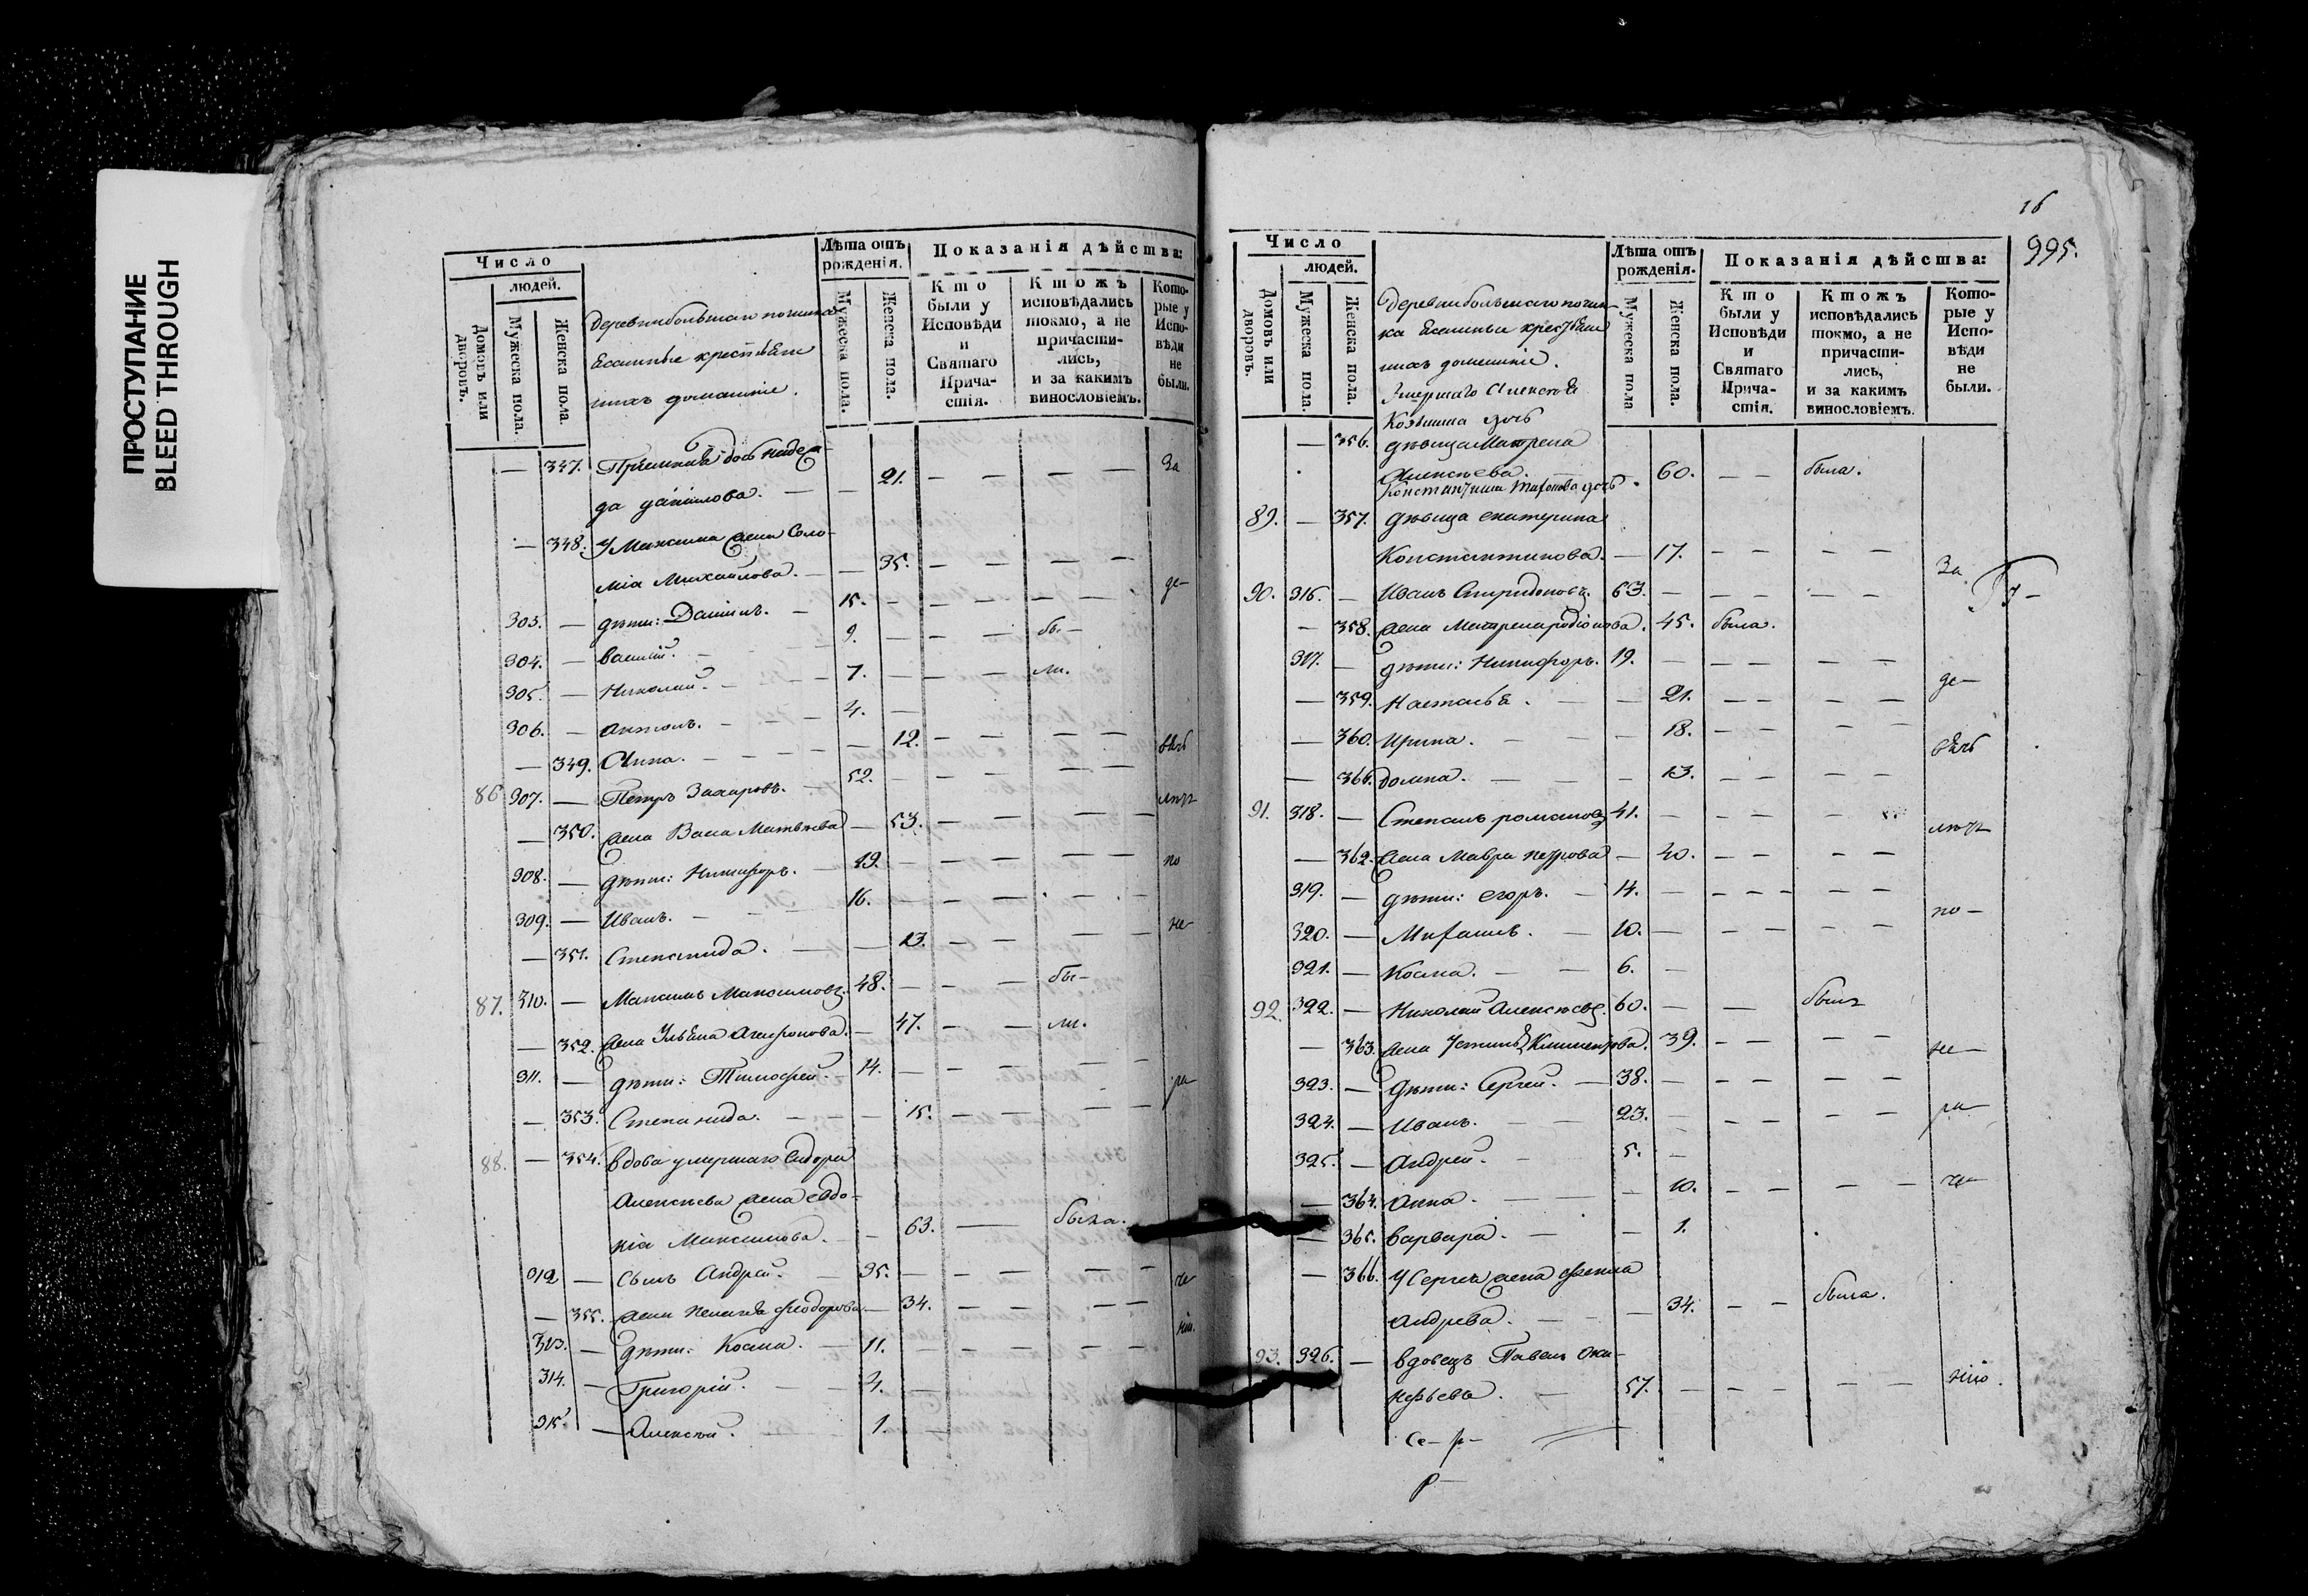 ПРОСТУПАНИЕ
BLEED THROUGH
Число
людей.
Домовъ или дворовъ.
Мужеска пола.
Женска пола.
Деревни большаго почина
крестьяне
ихъ домашніе.
Лѣта отъ рожденія.
Мужеска пола.
Женска пола.
Показанія дѣйства:
Кто были у Исповѣди и Святаго Причастія.
Ктожъ исповѣдались токмо, а не причастились, и за какимъ винословіемъ.
Которые у Исповѣди не были.
— 347. дочь Надеж-
да Данилова. — — 21. — — — — За
— 348. У Максима жена Соло-
міа Михайлова. — — 35. — — — —
303. — дѣти: Даніилъ. — 15. — — — — — де-
304. — Василій. — 9. — — — бы-
305. — Николай. — 7. — — — ли.
306. — Антонъ. — — 4. —
— 349. Анна. — — — — 12. — — — — вѣмъ
86 307. — Петръ Захаровъ. — 52. — — — — —
— 350. жена Васса Матвѣева — 53. — — — — лѣтъ
308. — дѣти: Никифоръ. — 19. — — — — — по
309. — Иванъ. — — 16. — — —
— 351. Степанида. — — 13. — — — — не-
87. 310. — Максимъ Максимовъ. 48. — — — бы-
— 352. жена Ульяна Агафонова. — 47. — — ли.
311. — дѣти: Тимофей. — 14. — — — — —
— 353. Степанида. — — — 15. — — — — ра-
88. — 354. Вдова умершаго Сидора
Алексѣева жена Евдо-
кіа Максимова. — — 63. — была.
312 — Сынъ Андрей. — 35. — — — — — че
— 355. жена Пелагѣа Феодорова — 34. — — — —
313. — дѣти: Косма. — 11. — — — — — ніи.
314. — Григорій. — — 4. —
315. — Алексѣй. — 1. —
16
995.
Число
людей.
Домовъ или дворовъ.
Мужеска пола.
Женска пола.
Деревни большаго почин-
ка крестьяне
ихъ домашніе.
Умершаго Алексѣя
Козьмина дочь
Лѣта отъ рожденія.
Мужеска пола
Женска пола.
Показанія дѣйства:
Кто были у Исповѣди и Святаго Причастія.
Ктожъ исповѣдались токмо, а не причастились, и за какимъ винословіемъ.
Которые у Исповѣди не были.
— 356. дѣвица Матрена
Алексѣева. — 60. — — была.
Константина Тихонова дочь
89. — 357. дѣвица Екатерина
Константинова. — 17. — — — — За
90. 316. — Иванъ Спиридоновъ. 63. — — — — —
— 358. жена Матрена Родіонова. 45. была.
317. — дѣти: Никифоръ. 19. — — — — —
— 359. Настасья. — — 21. — — — — де-
— 360. Ирина. — — 18. — — — —
— 366. Домна. — — 13. — — — — вѣмъ
91. 318. — Степанъ Романовъ 41. — — — —
— 362. жена Мавра Петрова — 40. — — — — лѣтъ
319. — дѣти: Егоръ. — 14. — — — — — —
320. — Михаилъ. — 10. — — — — — по-
321. — Косма. — — 6. —
92. 322. — Николай Алексѣевъ. 60. — — былъ
— 363. жена Устинья Климентова. 39. — — — — не-
323. — Дѣти: Сергѣй. — 38. — — — — —
324. — Иванъ. — — 23. — — — — — ра-
325. — Андрей. — 5. —
— 364. Анна. — — — 10. — — — — че-
— 365. Варвара. — — 1.
— 366. У Сергѣя жена Фекла
Андрева. — — 34. — — была.
93. 326. — Вдовецъ Павелъ
57. — — — — — нію.
Се- р-
р-